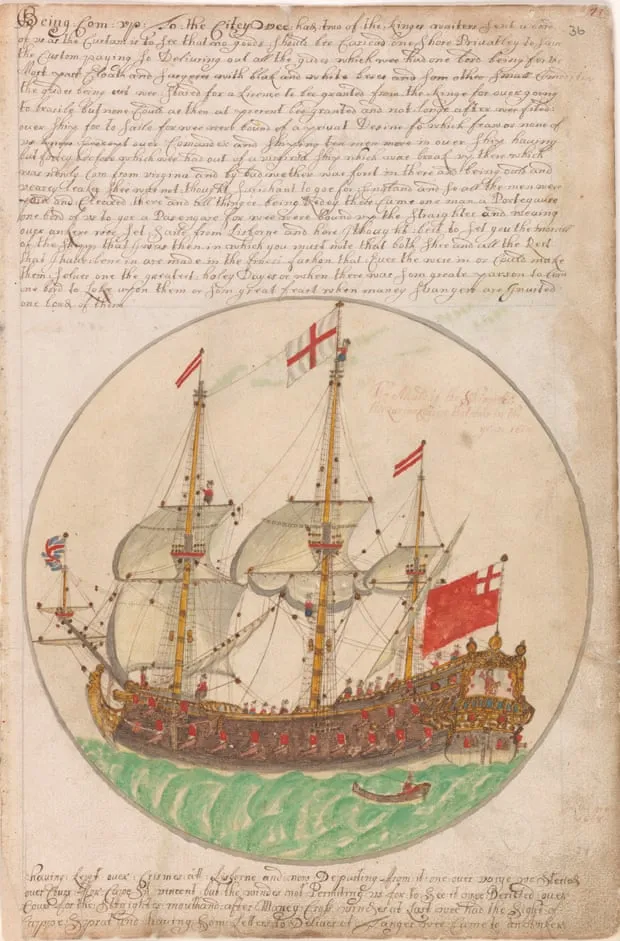 36
Being Com vp: To the Citey wee had two of the Kinges waiters sent a bord
of vs as the Custum is to see that no goods should bee Caried one shore Privatley to save
the Custom paying so Deliuering out all the gudes which wee had one bord being for the
Most part Cloath and with blak and white and som other small
the gudes being out wee staied for a License to bee granted from the Kinge for ouer going
to brasile but none Could as then at present bee granted and not longe after wee fitted
ouer ship for to saile for wee weere bound of a privat Desine so which few or none of
vs knew Except ouer Comander and shipping ten men more in ouer ship hauing
but before which wee had out of a virginia ship which was broak vp there which
was newly Com from virginia and by bad wether was forst in there and being ould and
uearey leakey shee was not thought suficient to goe for England and so all the men were
and Cleared there and all thinges being Redey there Came one man a Portegause
one bord of vs to goe a Pasengare for wee weere bound vp the Straightes and waying
ouer anker wee set saile from Lisborne and here I thought best to let you the maner
of the shipp that I was then in which you must note that both shee and all the Rest
that I haue bene in are made in the fashon that Euer the were in or Could make
them selues one the greatest holey Dayes or when there was som greate parson to Com
one bord to loke vpon them or som great feast when maney strangers are Inuited
one bord of them
The of the
in the
year
hauing Kept ouer Crismas att Lisborne and now Departing from it one ouer voiage wee stered
ouer Cours for Cape St vincent but the windes not Permiting vs for to see it wee Derected ouer
Cours for the Straightes mouth and after Maney Cross windes at last wee had the sight of
Cappe Sprat and hauing som Letters to Deliuer at Tanger wee Came to an Anker